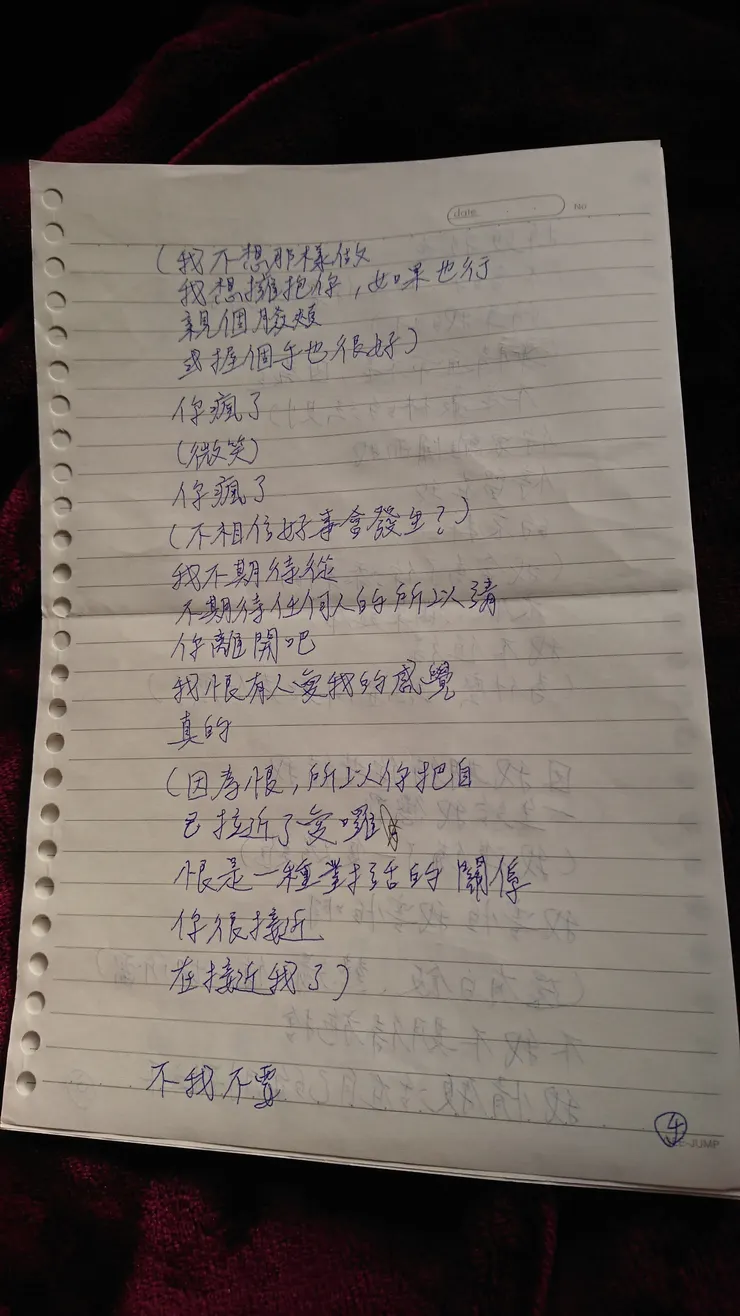 date
No
(我不想那樣做
我想擁抱你,如果也行
親個臉頰
或握個手也很好)
你瘋了
(微笑)
你瘋了
(不相信好事會發生?)
我不期待從
不期待任何人的所以請
你離開吧
我恨有人愛我的感覺
真的
(因為恨,所以你把自
己接近了愛囉
恨是一種對話的關係
你很接近
在接近我了)
不我不要
4
-JUMP